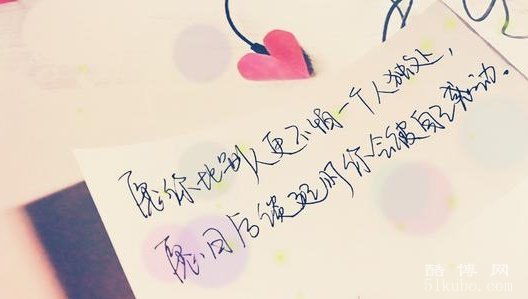 愿你比别人更不怕一个人独处,
愿日后谈起时你会被自己感动。
酷博网
51kubo.com